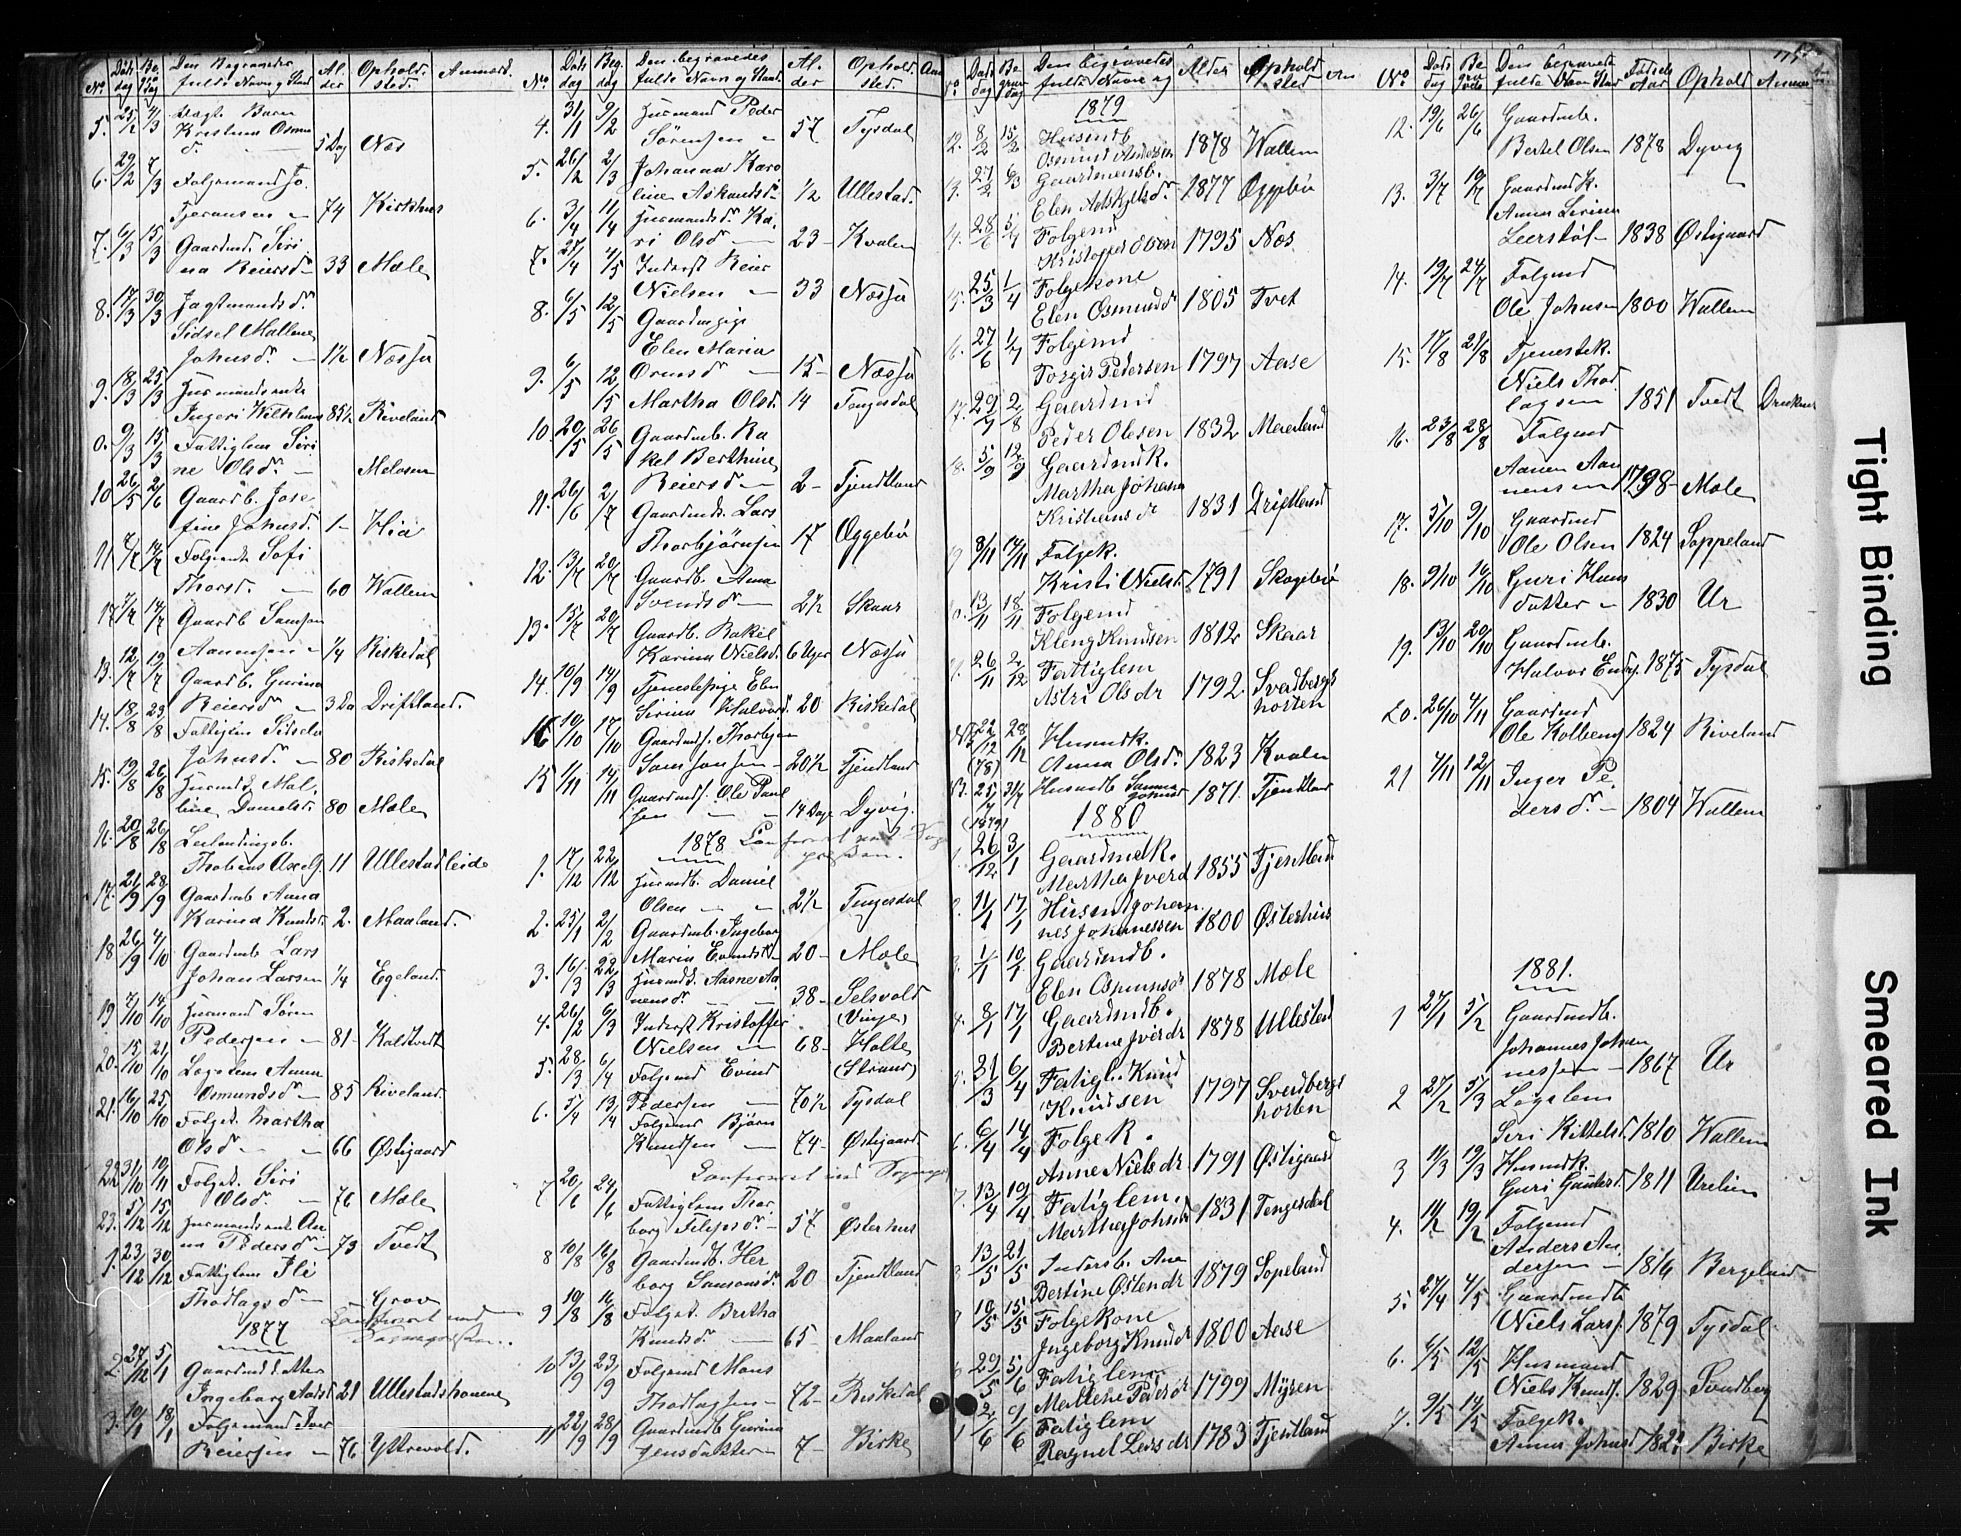 No Døds dag Be dag Den Begravedes fulde Navn og Stand Al- der Ophold sted. Anmærk.
5. 25/2 4/3 uægte Barn
Kristina Osmu
d. — 5 Dag Næs
6. 29/2 7/3 Folgemand Jo
Tjeransen — 74 Kirkhus
7. 6/3 15/3 Gaardmd. Siri
na Reiersd — 33 Mæle
8. 17/3 30/3 Jagtmandsd.
Sidsel Malline
Johnsd. — 1½ Næssa
9. 18/3 25/3 Husmandsenke
Ingeri Wilhelms 85½ Riveland
9/3 15/3 Fattiglem Siri
ne Olsd. — Melosen
10 26/5 2/6 Gaardb. Jose
fine Johnsd. 1- Hia
11 14/7 Folgenk Sofi
Thorsd. — 60 Wallem
14/7 Gaardb Samson
Aanensen — ¼ Riskedal
13. 12/7 19/7 Gaardb. Gurina
Reiersd — 3 Da Driftland.
14. 18/8 23/8 Fattiglem Sidsela
Johnsd. — 80 Riskedal
15. 19/8 26/8 Husmdk Mal
line Danielsd 80 Mæle
20/8 26/8 Leilendingsb.
Thobias Axelsg. 11 Ullestadleide
17. 21/9 28/9 Gaardmb Anna
Karina Knudsd. 2. Maaland.
18 26/9 4/10 Gaardmb Lars
Johan Larsen ¼ Egeland.
19 7/10 14/10 Husmand Sören
Pedersen — 81- Kaldtvedt
20. 15/10 21/10 Lægdlem Anna
Osmundsd — 85 Riveland.
21. 16/10 25/10 Folgek. Martha
Olsd — 66 Østigaard
22 31/10 10/11 Folgek. Siri
Olsd. — 76 Mæle
23. 5/12 15/12 Husmandsenk An
na Pedersd — 73 Tvedt
1. 23/12 30/12 Fattiglem Eli
Thorlagsd — Grov
1877 Conferert med
Sognepresten.
2. 27/12 5/1 Gaardmd datter
Ingeborg Aadsd 21 Ullestadhovene
3. 10/1 18/1 Folgemand Iver
Reiersen — 76 Yttrevold.
No Døds dag Beg dag Den begravedes fulde Navn og Stand. Al- der Ophold sted. Anm
4. 31/1 9/2 Husmand Peder
Sörensen — 57 Tysdal
5. 26/2 2/3 Johanna Karo
line Askandsd- ½ Ullestad.
6. 3/4 11/4 Husmandsd. Ka
ri Olsd — 23- Kvalen
7. 27/4 4/5 Inderst Reier
Nielsen — 33 Næssa
8. 6/5 12/5 Gaardmspige
Elen Maria
Ormsd — 15- Næssa
9. 6/5 12/5 Martha Olsd. 14 Tengesdal
10. 20/5 26/5 Gaardmb. Ra
kel Berthine
Reiersd — 2- Tjentland
11. 26/6 2/7 Gaardmds. Lars
Thorbjörnsen 17 Øggebø
12. 13/7 20/7 Gaardb. Anna
Svendsd — 2½ Skaar
13. 15/7 20/7 Gaardb. Rakel
Karina Nielsd. 6 Uger Næssa
14. 10/9 14/9 Tjenestepige Elen
Sirina Halvorsd. 20 Riskedal
16 10/10 17/10 Gaardmds. Thorbjørn
Samsonsen — 20½ Tjendland
15 1/11 14/11 Gaardmds. Ole Paul
sen — 14 Dage Dyvig.
1878 Conferert med Sog
presten.
1. 17/12 22/12 Husmdb. Daniel
Olsen — 2½ Tengesdal
2. 25/1 2/2 Gaardmb. Ingeborg
Maria Evindsd 20- Mæle
3. 16/3 22/3 Husmdk. Aasne Aa
nensd. 38- Selsvold
(Vinje)
4. 26/2 6/3 Inderst Kristoffer
Nielsen — 68- Holte
(Strand)
5. 28/3 6/4 Folgemd Evind
Pedersen — 70½ Tysdal
6. 5/4 13/4 Folgemd Björn
Knudsen — 74- Østigaard
Conferert med Sognepr
7 20/6 24/6 Fattiglem Thor
borg Filipsd — 57 Østerhus
8 10/8 16/8 Gaardmdb. Her
borg Samsonsd. 20 Tjendtland
9 10/8 16/8 Folgek. Bretha
Knudsd. — 65- Maaland
10 13/9 23/9 Folgemd Mons
Thorlaksen — 72- Riskedal
11 22/9 28/9 Gaardmdb Gurina
Jensdatter — 7- Birke
No. Døds Dag Be grav Dag Den begravedes fulde Navn og Alder Ophold sted An
1879
12. 8/2 15/2 Husmdb
Osmund Andersen 1878 Wallem
13. 27/2 6/3 Gaardmandsb.
Elen Askjelsd. 1877 Øggebø
28/6 5/7 Folgemd
Kristoffer Olsen 1795 Næs
25/3 1/4 Folgekone
Elen Osmundsd 1805 Tvet
27/6 1/7 Folgemd
Torgir Pedersen 1797 Aase
17. 29/7 2/8 Gaardmd
Peder Olesen 1832 Meierland
18. 5/9 12/9 Gaardmdk.
Martha Johana
Kristiansdr 1831 Driftland
9 8/11 17/11 Folgek.
Kristi Nielsd. 1791 Skogebø
13/11 18/11 Folgemd
Kleng Knudsen 1812 Skaar
26/11 2/12 Fattiglem
Astri Olsdr 1792 Sverdbergs
horten
22/12 (78) 28/12 Husmdk.
Anna Olsd. 1823 Kvalen
25/7 (1879) 31/7 Husmdb Samson
Johnsd 1871. Tjendtland
1880
26/12 3/1 Gaardmdk.
Martha Iversd 1855 Tjentland
11/1 17/1 Husmd Johan
nes Johannessen 1800 Østerhus
1/1 10/1 Gaardmdb.
Elen Osmundsd 1878 Mæle
4. 8/1 17/1 Gaardmdb.
Bertine Iversdr 1878 Ullestad
5. 31/3 6/4 Fatigl. Knud
Knudsen 1797 Sverdbergs
horten
6. 6/4 14/4 Folgek.
Anne Nielsdr 1791 Østigaard
7. 13/4 19/4 Fatiglem.
Martha Johnsd 1831 Tengesdal
13/5 21/5 Indersb. Ane
Bertine Østendr 1879 Sopeland
10/5 15/5 Folgekone
Ingeborg Knudsdr 1800 Aase
29/5 5/6 Fatiglem
Mallene Pedersdr 1799 Myren
2/6 9/6 Fatiglem
Ragnel Larsdr 1783 Tjentland
No Døds dag Be grave Den begravede fulde Navn Stand Fødsels Aar Ophold Anmær
12. 19/6 26/6 Gaardmb.
Bertel Olsen 1878 Dyvig
13. 3/7 10/7 Gaardmdk.
Anna Serina
Leerstøl — 1838 Østigaard
14. 19/7 24/7 Folgmd
Ole Johnsen 1800 Wallem
15. 17/8 21/8 Tjenestek.
Niels Thor
lagsen 1851 Tvedt Druknet
16. 23/8 28/8 Folgmd
Aanen Aan
nensen 1798- Mæle
17. 5/10 9/10 Gaardmd
Ole Olsen 1824 Soppeland
18. 9/10 16/10 Guri Hans
datter — 1830 Ur
19. 13/10 20/10 Gaardmb.
Halvor Endr. 1875 Tysdal
20. 26/10 4/11 Gaardmd
Ole Kolbeng 1824 Riveland
21 7/11 12/11 Inger Pe
dersd. — 1804 Wallem
1881.
1 27/1 5/2 Gaardmdb.
Johannes Johan
nessen — 1867 Ur
2 27/2 5/3 Lægslem
Seri Kittelsd. 1810 Wallem
3 11/3 19/3 Husmdk.
Guri Gautesd. 1811 Urelien
4. 14/2 19/2 Folgemd
Anders An
dersen — 1816 Bergeland
5. 27/4 4/5 Gaardmdb
Niels Larss. 1879 Tysdal
6. 6/5 12/5 Husmand
Niels Knuds. 1829- Svadberg
7. 9/5 14/5 Folgek.
Anna Johnsd Birke
Tight Binding
Smeared Ink